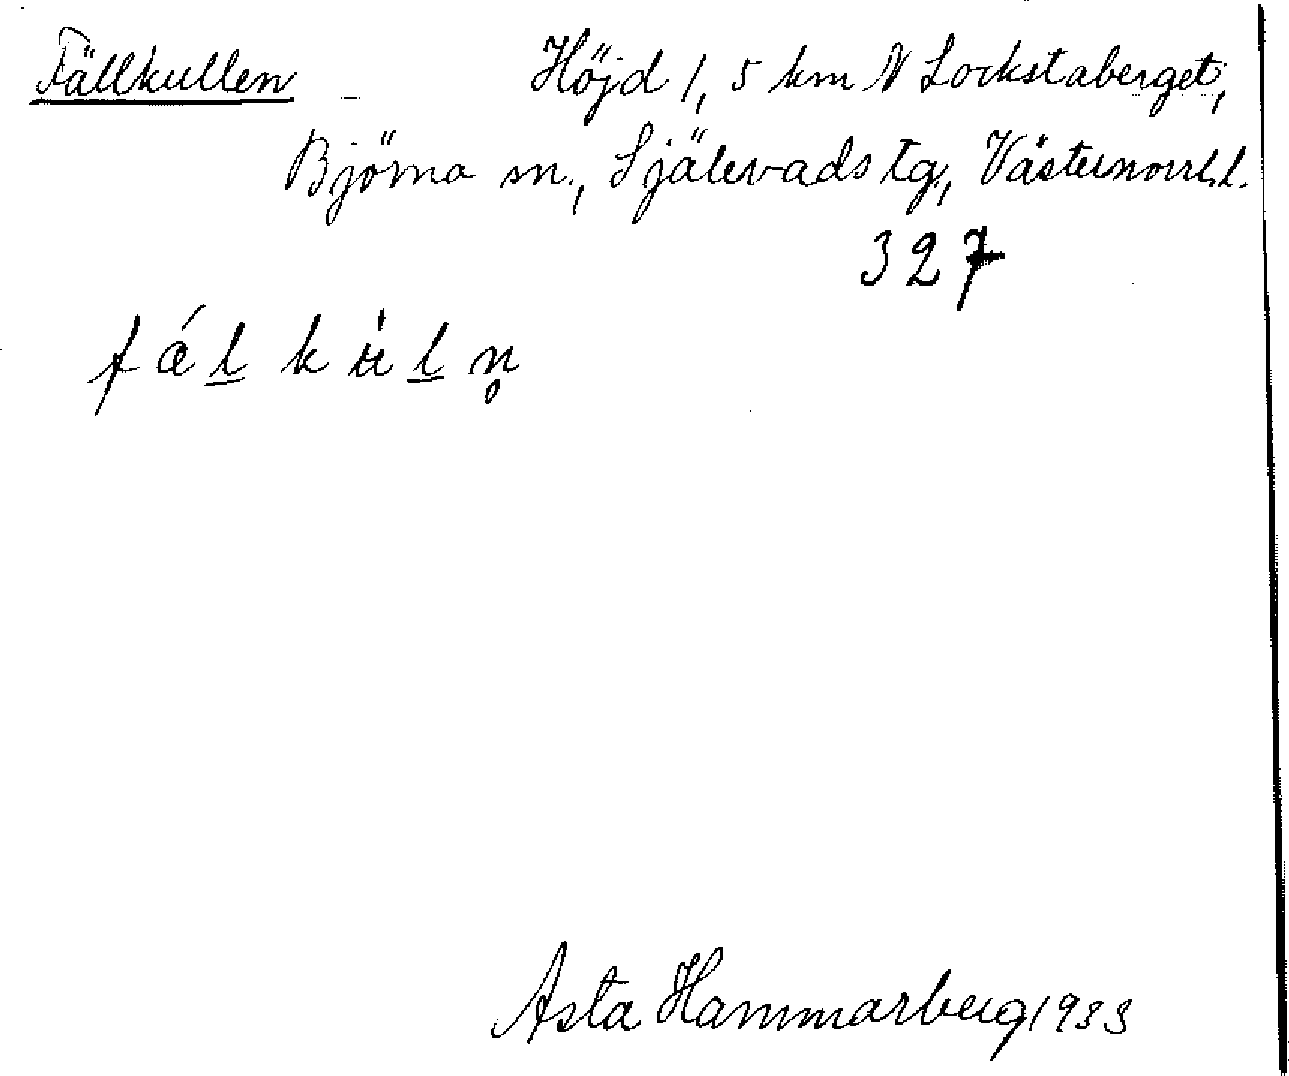 Fällkullen Höjd 1,5 km N Lockstaberget,
Björna sn., Själevads tg, Västernorrl.l.
327
f ǽ l̲ k ù l̲ n̥
Asta Hammarberg 1933